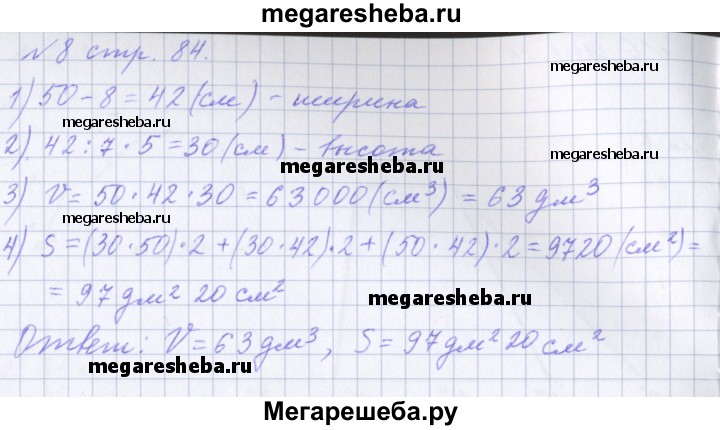 megaresheba.ru
№8 стр. 84.
megaresheba.ru
1) 50-8=42(см) - ширина
megaresheba.ru
2) 42:7·5=30(см) - высота
megaresheba.ru
megaresheba.ru
3) V=50·42·30=63000(см³)=63дм³
megaresheba.ru
4) S=(30·50)·2+(30·42)·2+(50·42)·2=9720(см²)=
=97дм² 20см²
megaresheba.ru
Ответ: V=63дм³, S=97дм²20см²
megaresheba.ru
Мегарешеба.ру